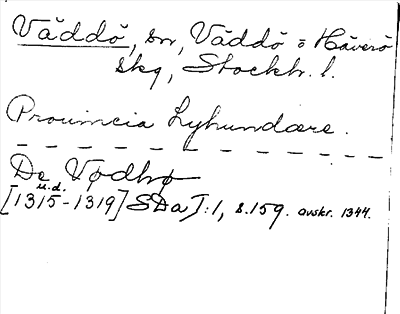 Väddö, sn, Väddö o Häverö
skg, Stockh. l.
Provincia Lyhundære.
De Vødhø
u.d.
[1315-1319] SDa I:1, s.159. avskr. 1344.